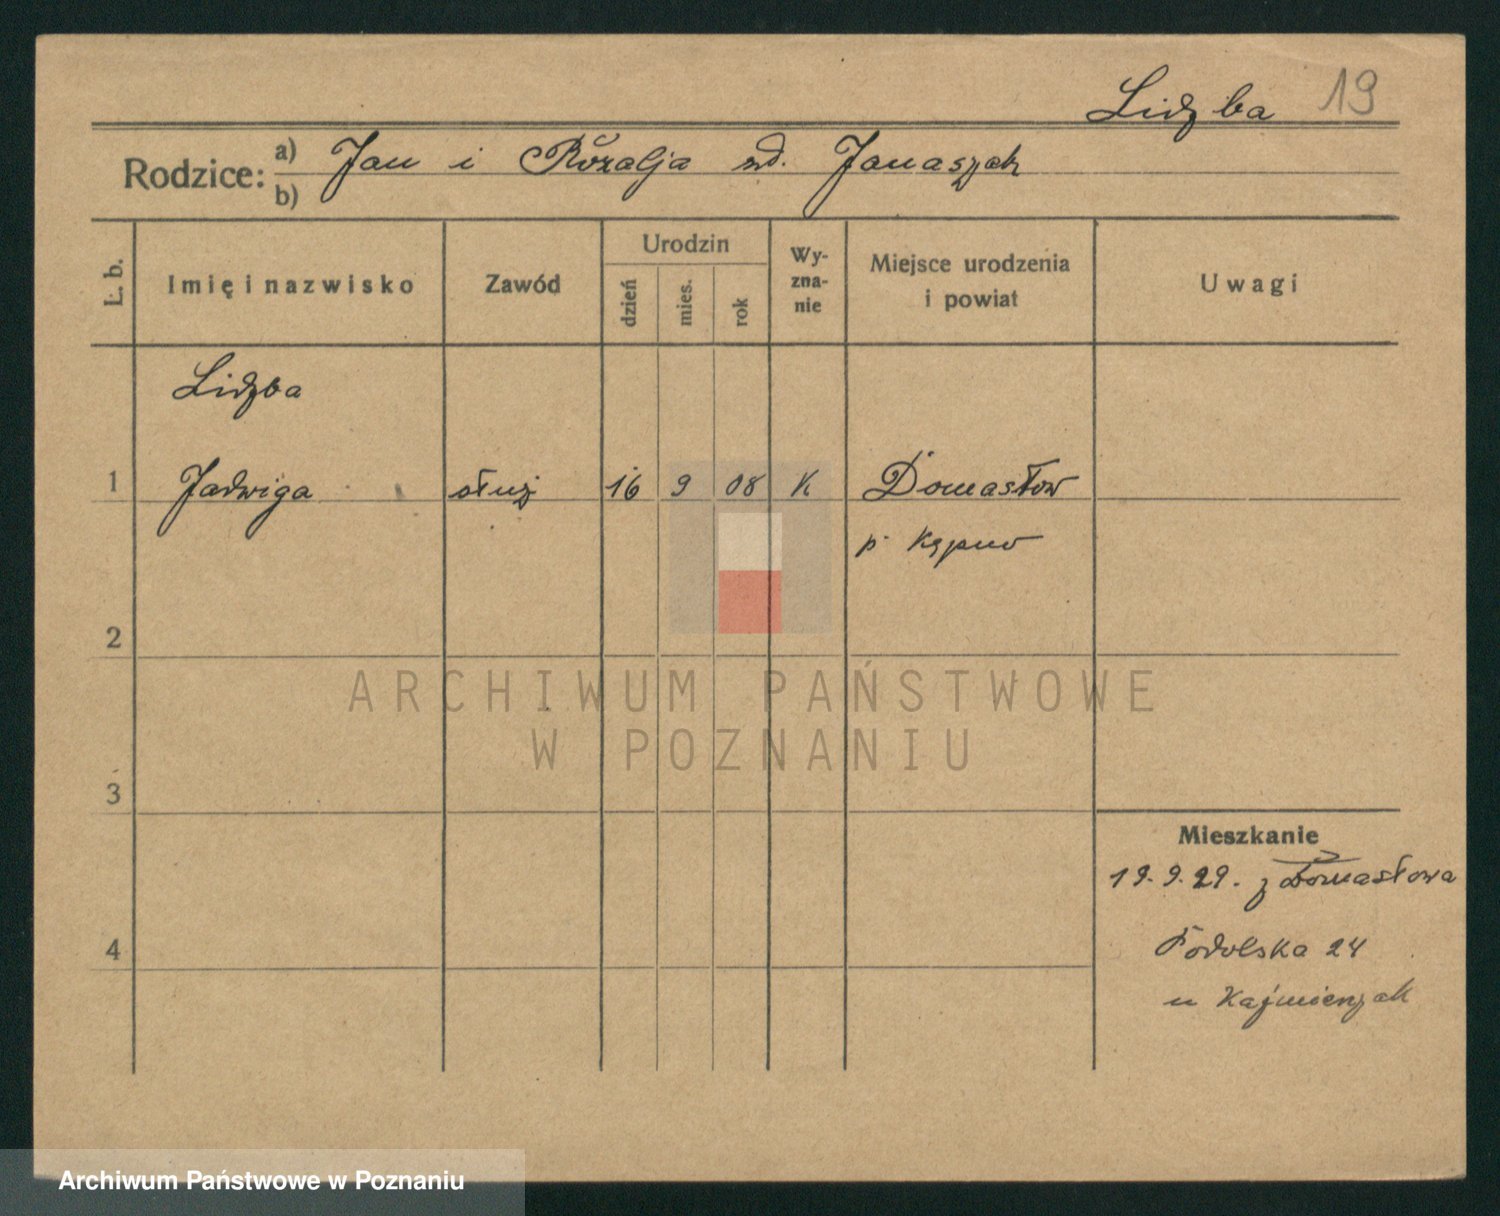 Lidzba 19
Rodzice: a) b) Jan i Rozalja zd. Janaszak
L. b. Imię i nazwisko Zawód Urodzin dzień mies. rok Wy-zna-nie Miejsce urodzenia i powiat Uwagi
Lidzba
1 Jadwiga służ 16 9 08 K Domasłow
p. Kępno
2
ARCHIWUM PAŃSTWOWE
W POZNANIU
3
Mieszkanie
19. 9. 29. z Domasłowa
4 Podolska 24
u Kaźmierzak
Archiwum Państwowe w Poznaniu